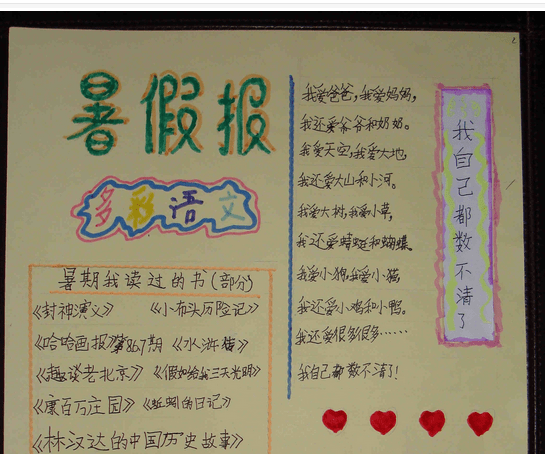 暑假报
多彩语文
暑期我读过的书(部分)
《封神演义》 《小布头历险记》
《哈哈画报》第867期 《水浒传》
《趣谈老北京》 《假如给我三天光明》
《康百万庄园》 《蚯蚓的日记》
《林汉达的中国历史故事》
我爱爸爸,我爱妈妈,
我还爱爷爷和奶奶。
我爱天空,我爱大地,
我还爱大山和小河。
我爱大树,我爱小草,
我还爱蜻蜓和蝴蝶。
我爱小狗,我爱小猫,
我还爱小鸡和小鸭。
我还爱很多很多……
我自己都数不清了!
我自己都数不清了